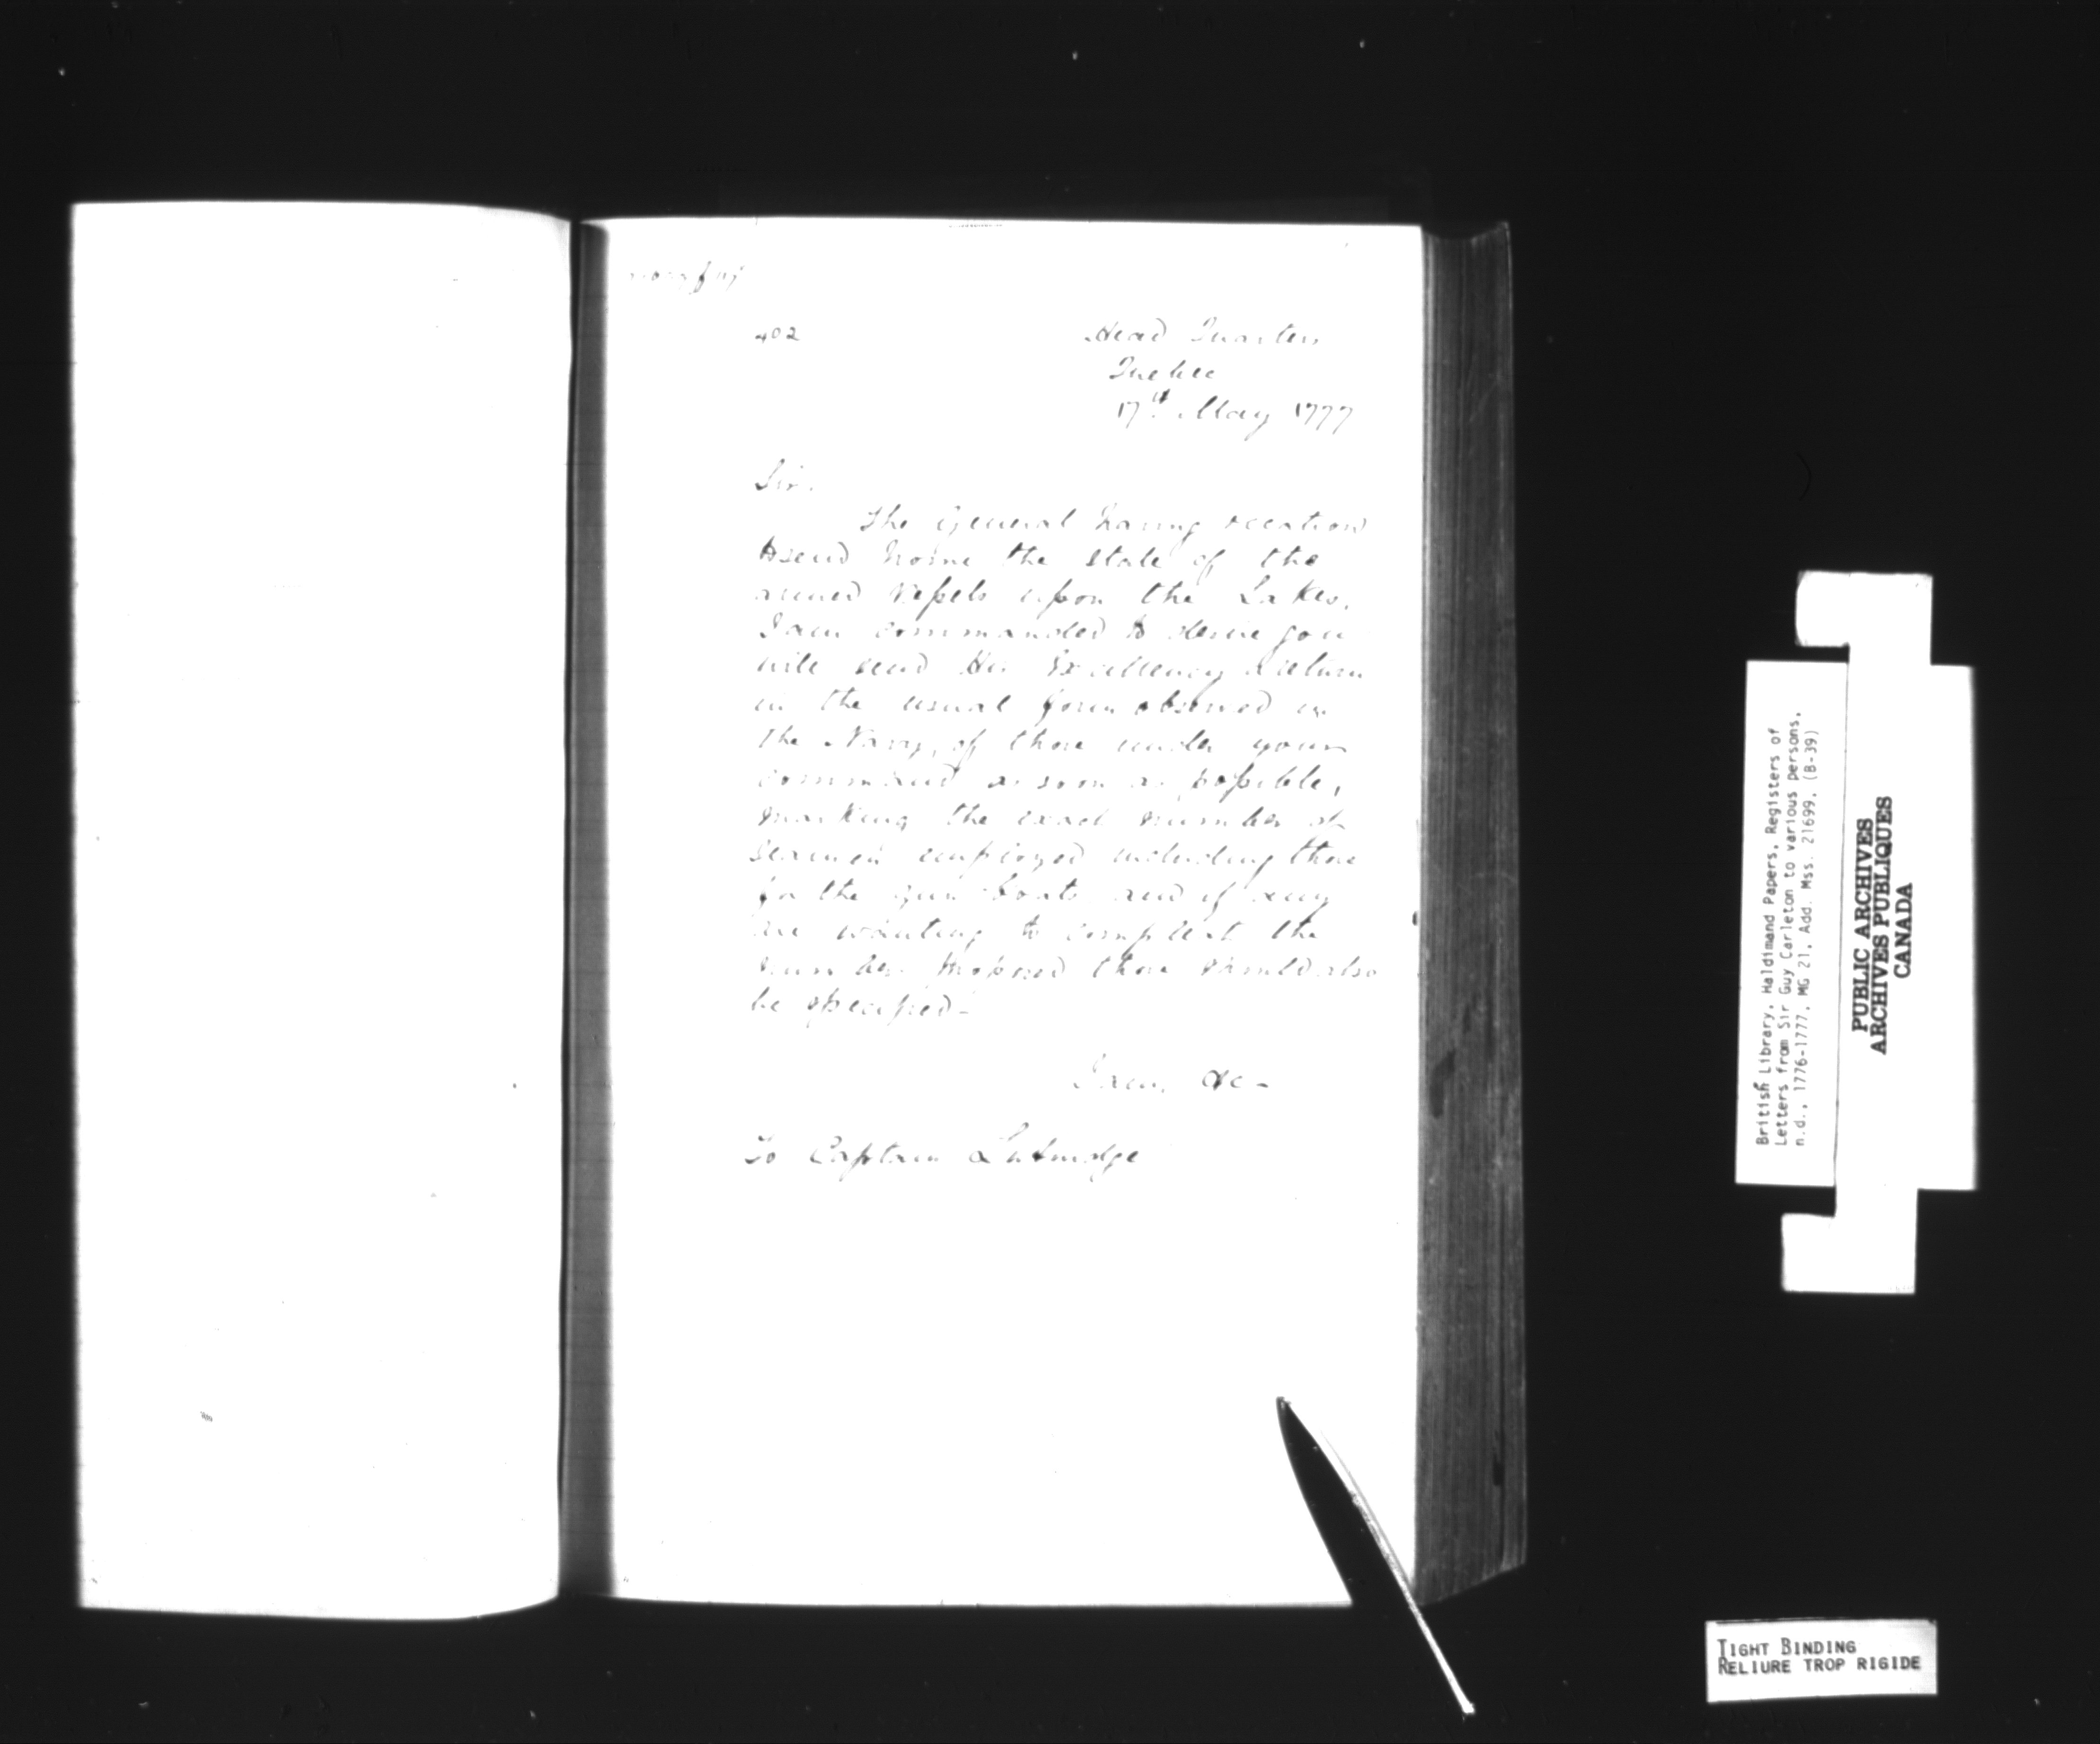 402
Head Quarters
Quebec
17th May 1777
Sir.
The General having occation
to send home the state of the
armed Vessels upon the Lakes,
I am commanded to desire you
will send His Excellency a return
in the usual form observed in
the Navy, of those under your
command as soon as possible,
marking the exact number of
seamen employed including those
for the gun boats and if any
are wanting to compleat the
number proposed these should also
be specified -
I am, &c -
To Captain Lutwidge
British Library, Haldimand Papers, Registers of
Letters from Sir Guy Carleton to various persons,
n.d., 1776-1777, MG 21, Add. Mss. 21699, (B-39)
PUBLIC ARCHIVES
ARCHIVES PUBLIQUES
CANADA
TIGHT BINDING
RELIURE TROP RIGIDE